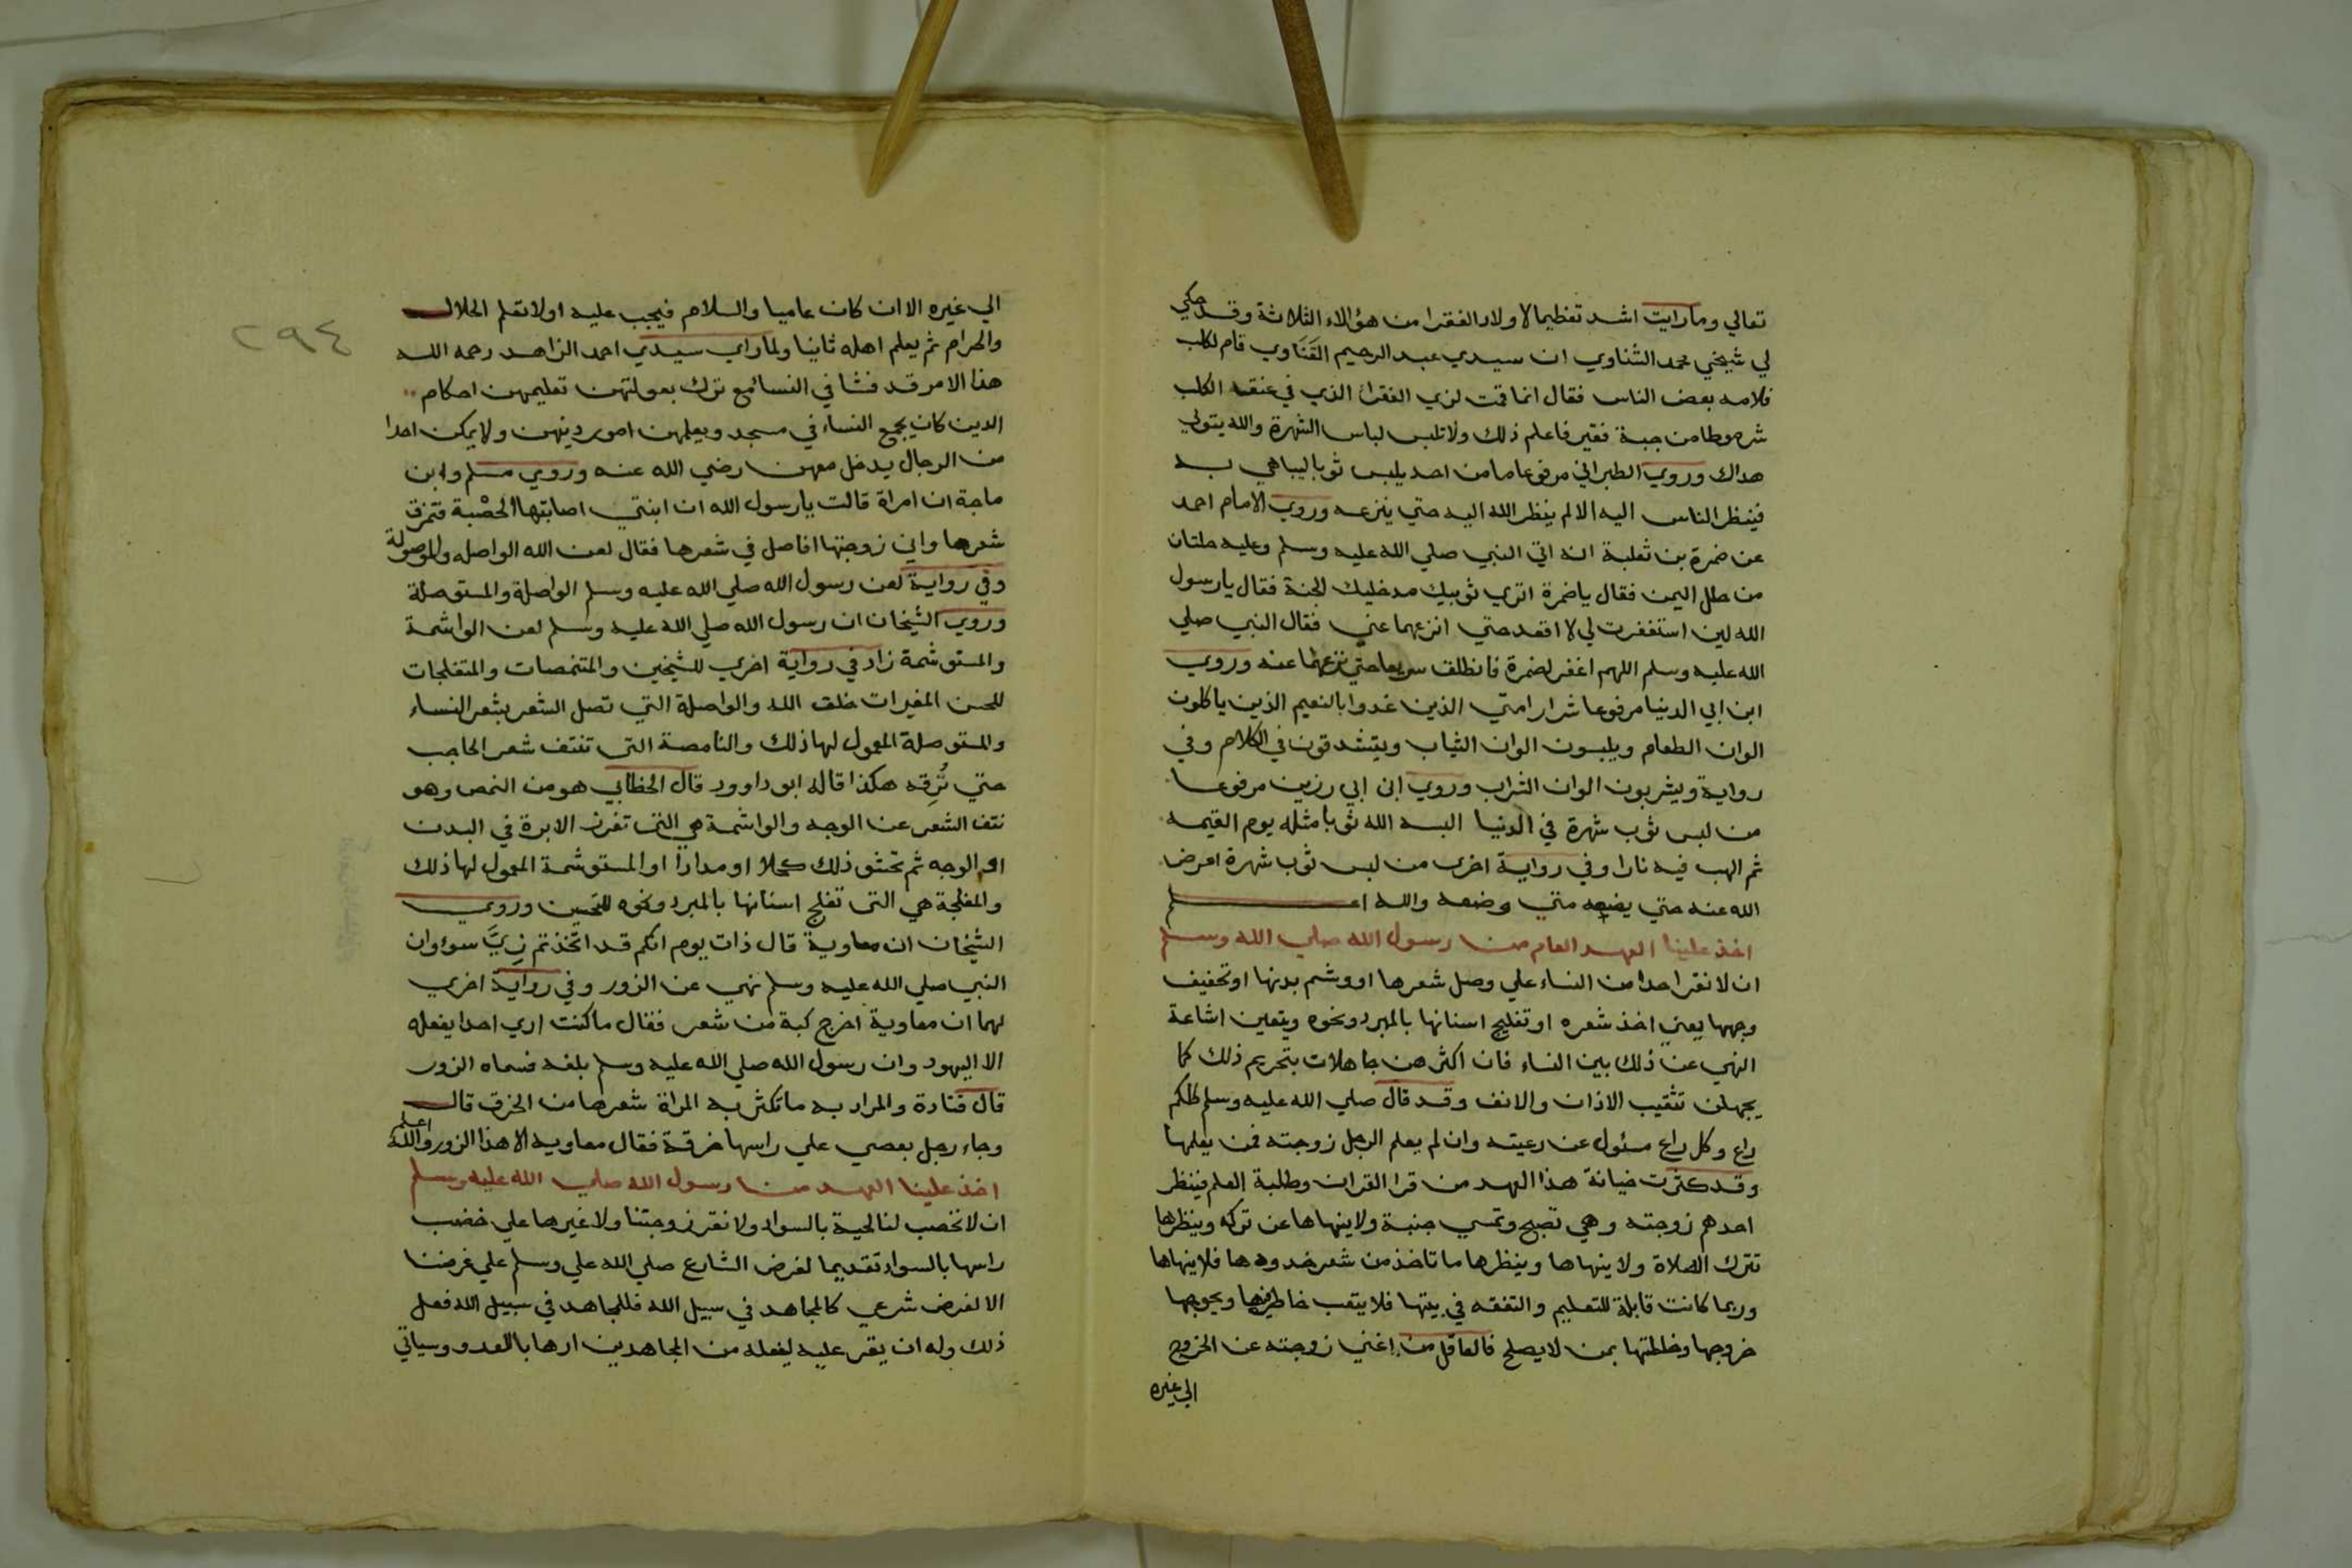 تعالي وما رايت اشد تعظيما لاولاد الفقرا من هؤلاء الثلاثة وقد حكي
لي شيخي محمد الشناوي ان سيدي عبد الرحيم القَنَاوي قام لكلب
فلامه بعض الناس فقال انما قمت لزي الفقراء الذي في عنقه الكلب
شرموطا من جبة فقير فاعلم ذلك ولا تلبس لباس الشهرة والله يتولي
هداك وروي الطبراني مرفوعا ما من احد يلبس ثوبا ليباهي به
فينظر الناس اليه الا لم ينظر الله اليه حتي ينزعه وروي الامام احمد
عن ضمرة بن ثعلبة انه اتي النبي صلي الله عليه وسلم وعليه حلتان
من حلل اليمن فقال يا ضمرة اتري ثوبيك مدخليك الجنة فقال يا رسول
الله لين استغفرت لي لا اقعد حتي انزعهما عني فقال النبي صلي
الله عليه وسلم اللهم اغفر لضمرة فانطلق سريعا حتي نزعهما عنه وروي
ابن ابي الدنيا مرفوعا شرار امتي الذين غدوا بالنعيم الذين ياكلون
الوان الطعام ويلبسون الوان الثياب ويتشدقون في الكلام وفي
رواية ويشربون الوان الشراب وروي ابن ابي رزين مرفوعا
من لبس ثوب شهرة في الدنيا البسه الله ثوبا مثله يوم القيمه
ثم الهب فيه نارا وفي رواية اخري من لبس ثوب شهرة اعرض
الله عنه حتي يضعه متي وضعه والله اعلم
اخذ علينا العهد العام من رسول الله صلي الله وسلم
ان لا نقر احدا من النساء علي وصل شعرها او وشم بدنها او تحفيف
وجهها يعني اخذ شعره او تفليج اسنانها بالمبرد ونحوه ويتعين اشاعة
النهي عن ذلك بين النساء فان اكثرهن جاهلات بتحريم ذلك كما
يجهلن تثقيب الاذان والانف وقد قال صلي الله عليه وسلم كلكم
راع وكل راع مسئول عن رعيته وان لم يعلم الرجل زوجته فمن يعلمها
وقد كثرت خيانة هذا العهد من قرا القران وطلبة العلم فينظر
احدهم زوجته وهي تصبح وتمسي جنبة ولا ينهاها عن تركه وينظرها
تترك الصلاة ولا ينهاها وينظرها ما تاخذ من شعر خدودها فلا ينهاها
وربما كانت قابلة للتعليم والتفقه في بيتها فلا يتعب خاطره فيها ويحوجها
خروجها وخلطتها بمن لا يصلح فالعاقل من اغني زوجته عن الخروج
الي غيره
الي غيره الا ان كان عاميا والسلام فيجب عليه اولا تعلم الحلال
والحرام ثم يعلم اهله ثانيا ولما راي سيدي احمد الزاهد رحمه الله
هذا الامر قد فشا في النسا مع ترك بعولتهن تعليمهن احكام
الدين كان يجمع النساء في مسجد ويعلمهن امور دينهن ولا يمكن احدا
من الرجال يدخل معهن رضي الله عنه وروي مسلم وابن
ماجة ان امراة قالت يا رسول الله ان ابنتي اصابتها الحصْبة فتمزق
شعرها واني زوجتها افاصل في شعرها فقال لعن الله الواصله والموصولة
وفي رواية لعن رسول الله صلي الله عليه وسلم الواصلة والمستوصلة
وروي الشيخان ان رسول الله صلي الله عليه وسلم لعن الواشمة
والمستوشمة زاد في رواية اخري للشيخين والمتنمصات والمتفلجات
للحسن المغيرات خلق الله والواصلة التي تصل الشعر بشعر النساء
والمستوصلة المعمول لها ذلك والنامصة التي تنتف شعر الحاجب
حتي تُرِقه هكذا قاله ابو داوود قال الخطابي هو من النمص وهو
نتف الشعر عن الوجه والواشمة هي التي تغرز الابرة في البدن
او الوجه ثم تحشو ذلك كحلا او مدادا او المستوشمة المعمول لها ذلك
والمفلجة هي التي تفلج اسنانها بالمبرد ونحوه للتحسين وروي
الشيخان ان معاوية قال ذات يوم انكم قد اتخذتم زِيَّ سوء وان
النبي صلي الله عليه وسلم نهي عن الزور وفي رواية اخري
لهما ان معاوية اخرج كبة من شعر فقال ما كنت اري احدا يفعله
الا اليهود وان رسول الله صلي الله عليه وسلم بلغه فسماه الزور
قال قتادة والمراد به ما تكثر به المراة شعرها من الخرق قال
وجاء رجل بعصي علي راسها خرقة فقال معاويه الا هذا الزور والله اعلم
اخذ علينا العهد من رسول الله صلي الله عليه وسلم
ان لا نخصب لنا لحية بالسواد ولا نقر زوجتنا ولا غيرها علي خضب
راسها بالسواد تقديما لغرض الشارع صلي الله علي وسلم علي غرضنا
الا لغرض شرعي كالمجاهد في سبيل الله فللمجاهد في سبيل الله فعل
ذلك وله ان يقر عليه ليفعله من المجاهدين ارهابا للعدو وسياتي
٢٩٤